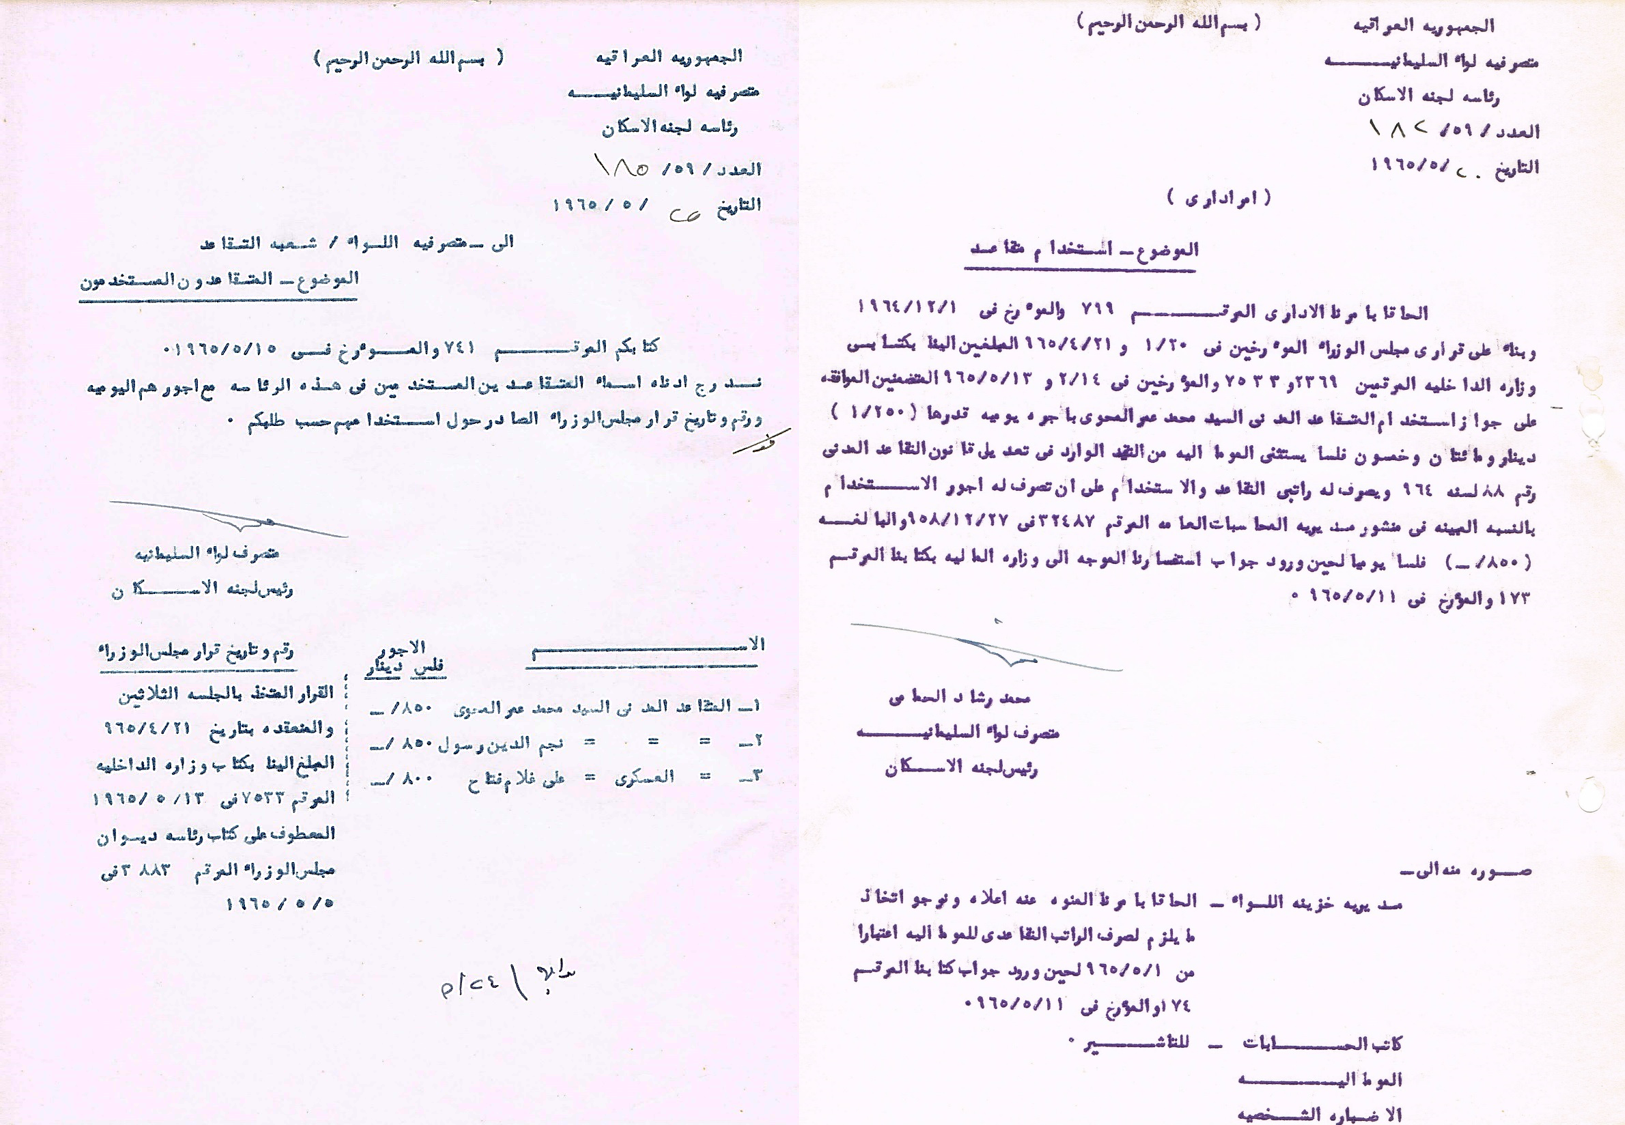 الجمهوريه العراقيه
( بسم الله الرحمن الرحيم )
متصرفيه لواء السليمانيـــــه
رئاسه لجنه الاسكان
العدد / ٥٩/ ١٨٢
التاريخ ٢٠/٥/١٩٦٥
( امر اداري )
الموضوع ــ استخدام متقاعد
الحاقا بامرنا الاداري المرقــــم ٧٩٩ والمؤرخ في ١٩٦٤/١٢/١
وبناء على قراري مجلس الوزراء المؤرخين في ١/٢٠ و ٩٦٥/٤/٢١ المبلغين الينا بكتابي
وزاره الداخليه المرقمين ٢٣٦٩ و ٧٥٣٣ والمؤرخين في ٢/١٤ و ٩٦٥/٥/١٣ المتضمنين الموافقه
على جواز استخدام المتقاعد المدني السيد محمد عمر المحوي باجره يوميه قدرها ( ١/٢٥٠ )
دينار ومائتان وخمسون فلسا يستثنى المومااليه من القيد الوارد في تعديل قانون التقاعد المدني
رقم ٨٨ لسنه ٩٦٤ ويصرف له راتبي التقاعد والاستخدام على ان تصرف له اجور الاستخدام
بالنسبه المبينه في منشور مديريه المحاسبات العامه المرقم ٣٢٤٨٧ في ٩٥٨/١٢/٢٧ والبالغـــه
( ٨٥٠/ــ ) فلسا يوميا لحين ورود جواب استفسارنا الموجه الى وزاره الماليه بكتابنا المرقم
١٧٣ والمؤرخ في ٩٦٥/٥/١١ ٠
محمد رشاد الحطامي
متصرف لواء السليمانيـــــه
رئيس لجنه الاسكان
صـوره منه الى ــ
مديريه خزينه اللـواء ــ الحاقا بامرنا المنوه عنه اعلاه ونرجو اتخاذ
ما يلزم لصرف الراتب التقاعدي للمومااليه اعتبارا
من ٩٦٥/٥/١ لحين ورود جواب كتابنا المرقم
١٧٤ والمؤرخ في ٩٦٥/٥/١١ ٠
كاتب الحسـابات ــ للتاشـير ٠
المومااليـــــه
الاضباره الشخصيه
الجمهوريه العراقيه
( بسم الله الرحمن الرحيم )
متصرفيه لواء السليمانيـــــه
رئاسه لجنه الاسكان
العدد / ٥٩/ ١٨٥
التاريخ /٥ /١٩٦٥
الى ــ متصرفيه اللـواء / شعبه التقاعد
الموضوع ــ المتقاعدون المستخدمون
كتابكم المرقـــم ٧٤١ والمــؤرخ فـي ١٩٦٥/٥/١٥ ٠
نـدرج ادناه اسماء المتقاعدين المستخدمين في هذه الرئاسه مع اجورهم اليوميه
ورقم وتاريخ قرار مجلس الوزراء الصادر حول استخدامهم حسب طلبكم ٠
متصرف لواء السليمانيه
رئيس لجنه الاسـكان
الاســـــم الاجور رقم وتاريخ قرار مجلس الوزراء
فلس دينار
١ــ المتقاعد المدني السيد محمد عمر المحوي ٨٥٠/ــ
٢ــ = = = نجم الدين رسول ٨٥٠/ــ
٣ــ = العسكري = علي غلام فتاح ٨٠٠/ــ
القرار المتخذ بالجلسه الثلاثين
والمنعقده بتاريخ ٩٦٥/٤/٢١
المبلغ الينا بكتاب وزاره الداخليه
المرقم ٧٥٣٣ في ١٣/ ٥/ ١٩٦٥
المعطوف على كتاب رئاسه ديـوان
مجلس الوزراء المرقم ٣٨٨٣ في
٥/ ٥/ ١٩٦٥
٥/٢٤